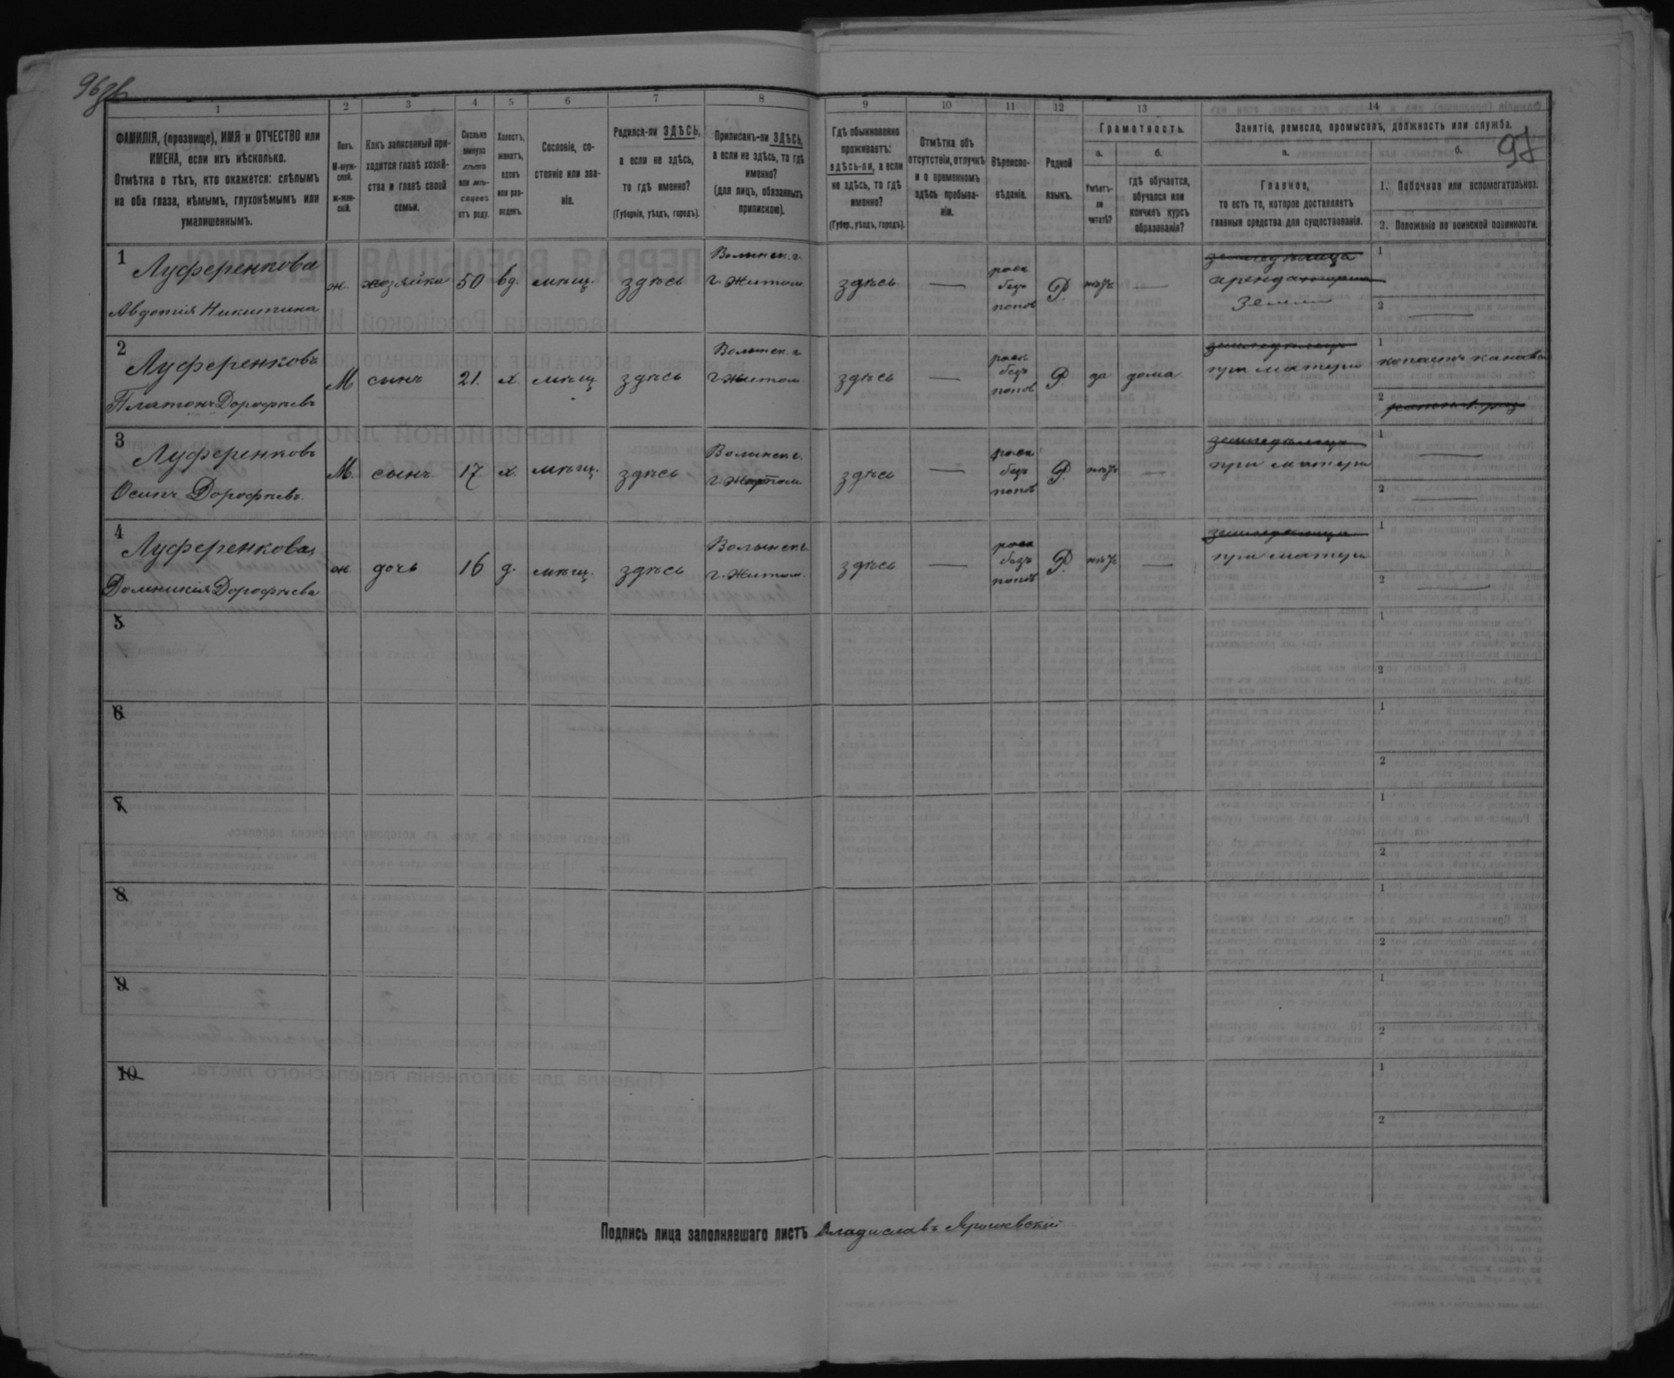 96об
97
1 2 3 4 5 6 7 8 9 10 11 12 13 14
ФАМИЛІЯ, (прозвище), ИМЯ и ОТЧЕСТВО или
ИМЕНА, если ихъ нѣсколько.
Отмѣтка о тѣхъ, кто окажется: слѣпымъ
на оба глаза, нѣмымъ, глухонѣмымъ или
умалишеннымъ.
Полъ.
М-муж-
ской.
ж-жен-
скій.
Какъ записанный при-
ходится главѣ хозяй-
ства и главѣ своей
семьи.
Сколько
минуло
лѣтъ
или мѣ-
сяцевъ
отъ роду.
Холостъ,
женатъ,
вдовъ
или раз-
веденъ.
Сословіе, со-
стояніе или зва-
ніе.
Родился-ли ЗДѢСЬ,
а если не здѣсь,
то гдѣ именно?
(Губернія, уѣздъ, городъ).
Приписанъ-ли ЗДѢСЬ,
а если не здѣсь, то гдѣ
именно?
(для лицъ, обязанныхъ
припискою).
Гдѣ обыкновенно
проживаетъ:
здѣсь-ли, а если
не здѣсь, то гдѣ
именно?
(Губер., уѣздъ, городъ).
Отмѣтка объ
отсутствіи, отлучкѣ
и о временномъ
здѣсь пребыва-
ніи.
Вѣроиспо-
вѣданіе.
Родной
языкъ.
Грамотность.
а.
Умѣетъ-
ли
читать?
б.
гдѣ обучается,
обучался или
кончилъ курсъ
образованія?
Занятіе, ремесло, промыселъ, должность или служба.
а.
Главное,
то есть то, которое доставляетъ
главныя средства для существованія.
б.
1. Побочное или вспомогательное.
2. Положеніе по воинской повинности.
1 Луференкова
Авдотія Никитина
ж. хозяйка 50 вд. мѣщ. здѣсь
Волынск. г.
г. Житом.
здѣсь —
раск
безъ
попов
Р. нѣтъ —
земледѣлица
аренда
земли
1
2 —
2 Луференковъ
Платонъ Дорофѣевъ
М сынъ 21. х. мѣщ. здѣсь
Волынск. г.
г. Житом.
здѣсь —
раск
безъ
попов
Р. да дома
земледѣлецъ
при матери
1 копаетъ канавы
2
3 Луференковъ
Осипъ Дорофѣевъ
М. сынъ 17. х. мѣщ. здѣсь
Волынск г.
г. Житом.
здѣсь —
раск
безъ
попов
Р. нѣтъ —
земледѣлецъ
при матери
1 —
2 —
4 Луференкова
Домникія Дорофѣева
ж дочь 16 д. мѣщ. здѣсь
Волынск г.
г. Житом.
здѣсь —
раск
безъ
попов
Р. нѣтъ —
земледѣлица
при матери
1
2 —
5
1
2
6
1
2
7
1
2
8
1
2
9
1
2
10
1
2
Подпись лица заполнявшаго листъ Владиславъ Ярошевскій